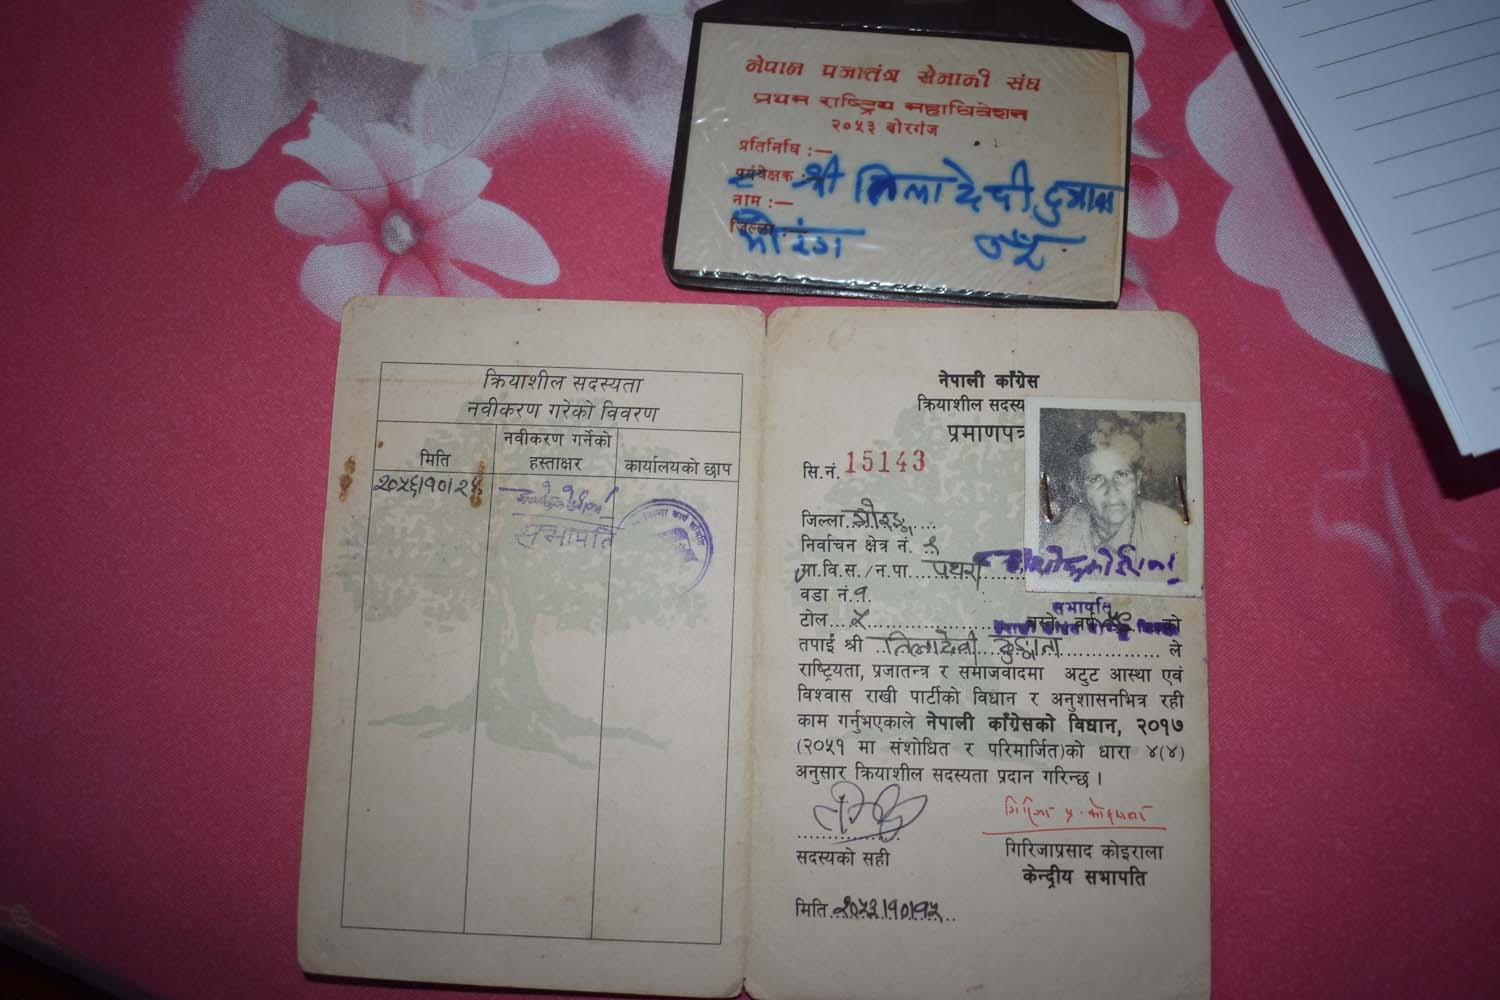 नेपाल प्रजातंत्र सेनानी संघ
प्रथम राष्ट्रिय महाधिवेशन
२०५३ बीरगंज
प्रतिनिधि :—
पर्यवेक्षक : श्री तिला देवी
नाम :—
जिल्ला :—
मोरंग
क्रियाशील सदस्यता
नवीकरण गरेको विवरण
मिति
नवीकरण गर्नेको हस्ताक्षर
कार्यालयको छाप
२०५६।१०।२५
सभापति
नेपाली काँग्रेस
क्रियाशील सदस्य
प्रमाणपत्र
सि.नं. 15143
जिल्ला. मोरङ्ग
निर्वाचन क्षेत्र नं. १
गा.वि.स./न.पा. पथरी
वडा नं. १
सभापति
टोल... ५ बस्ने वर्ष को
तपाईं श्री ..तिलादेवी ले
राष्ट्रियता, प्रजातन्त्र र समाजवादमा अटुट आस्था एवं
विश्वास राखी पार्टीको विधान र अनुशासनभित्र रही
काम गर्नुभएकाले नेपाली काँग्रेसको विधान, २०१७
(२०५१ मा संशोधित र परिमार्जित)को धारा ४(४)
अनुसार क्रियाशील सदस्यता प्रदान गरिन्छ ।
सदस्यको सही
गिरिजा प्र. कोइराला
गिरिजाप्रसाद कोइराला
केन्द्रीय सभापति
मिति २०५३।१०।१५